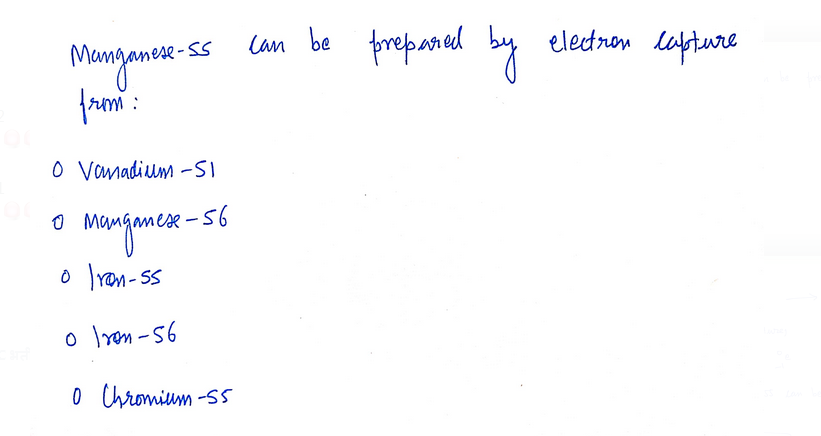 Manganese-55 can be prepared by electron capture
from :
Vanadium-51
Manganese-56
Iron-55
Iron-56
Chromium-55